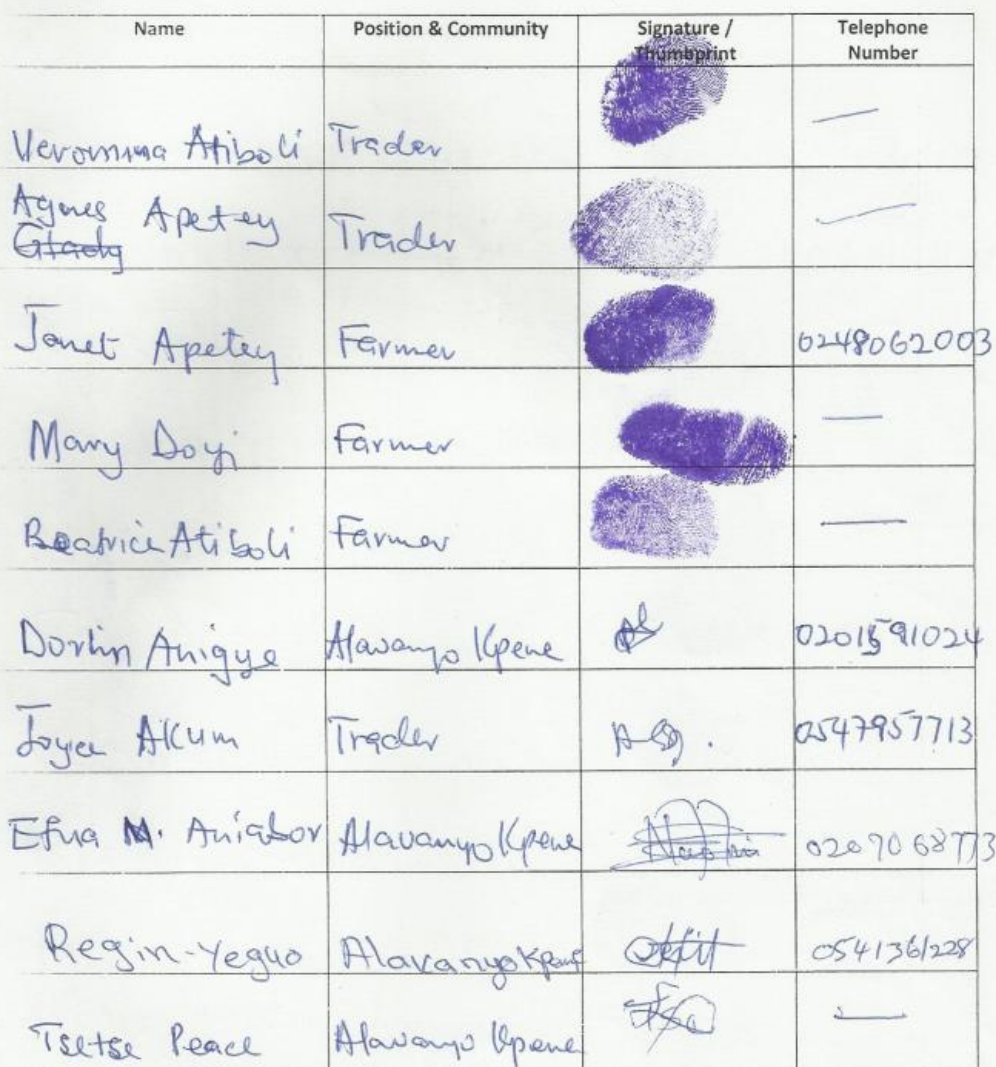 Name Position & Community Signature / Thumbprint Telephone Number
Veronina Atiboli Trader —
Agnes Apetey Trader —
Glady
Janet Apetey Farmer 0248062003
Mary Doyi Farmer —
Beatrice Atiboli Farmer —
Dorlin Anigye Alavanyo Kpene 0201591024
Joyce Akum Trader 0547957713
Efua M. Aniabor Alavanyo Kpene 0209068773
Regin-Yeguo Alavanyo Kpene 0541361228
Tsetse Peace Alavanyo Kpene —